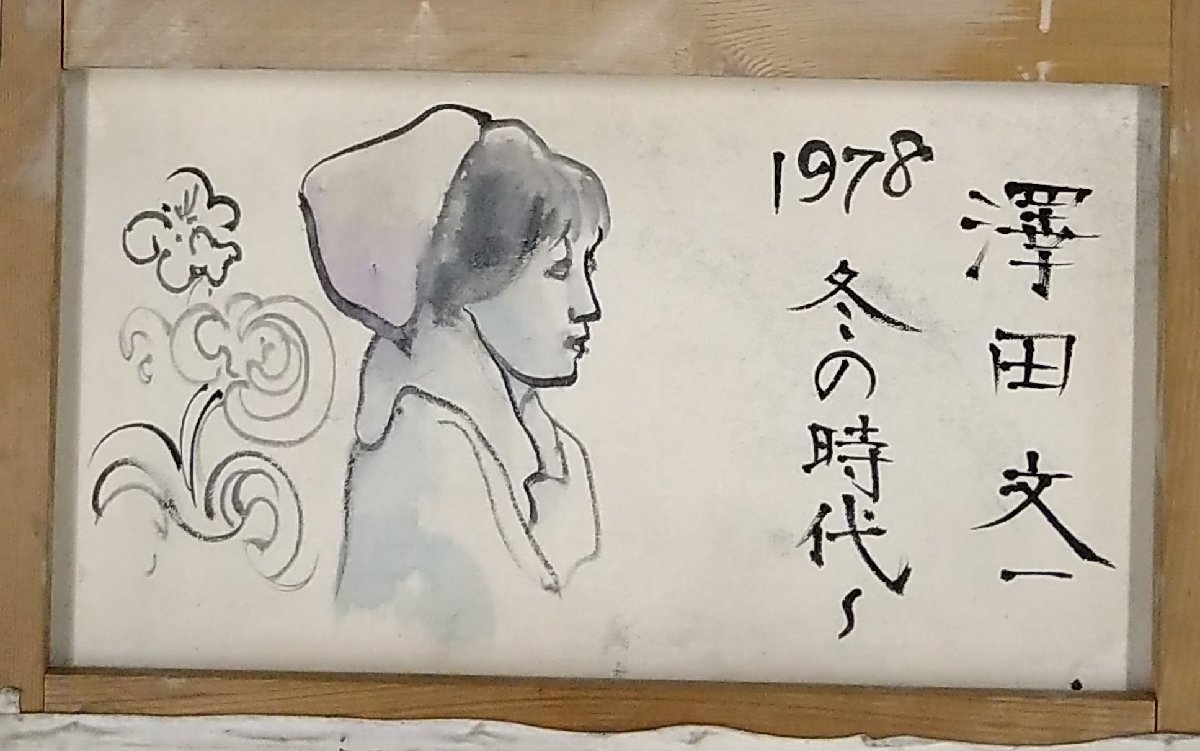 澤田文一
1978
冬の時代～